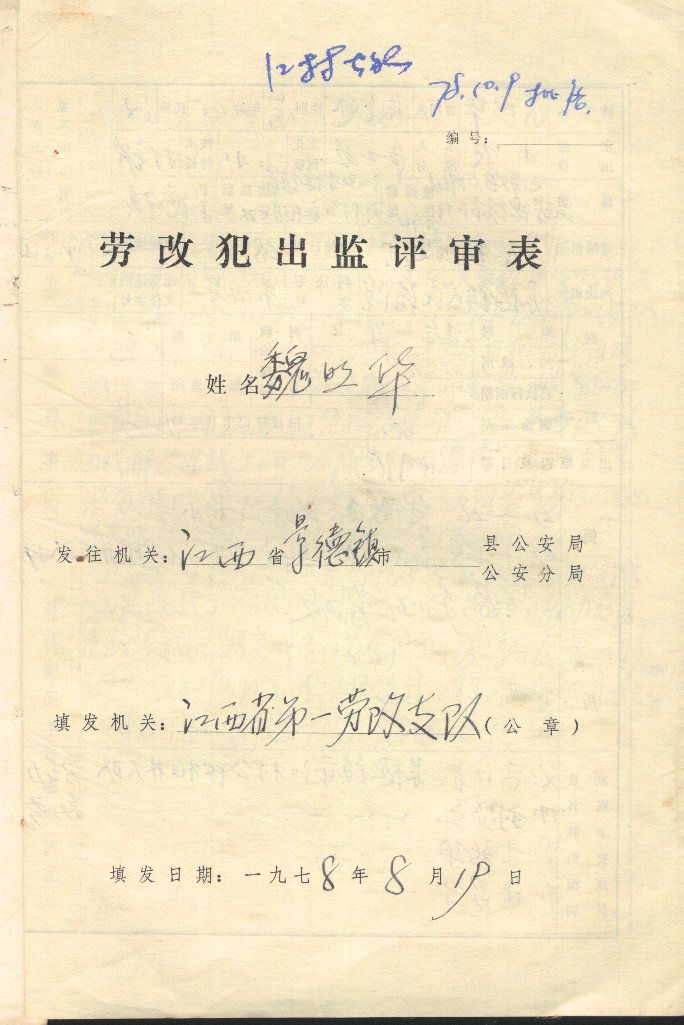 江村
78.10.9
编号：
劳改犯出监评审表
姓名魏明华
发往机关：江西省景德镇市 县公安局
公安分局
填发机关：江西省第一劳改支队（公章）
填发日期：一九七8年8月19日